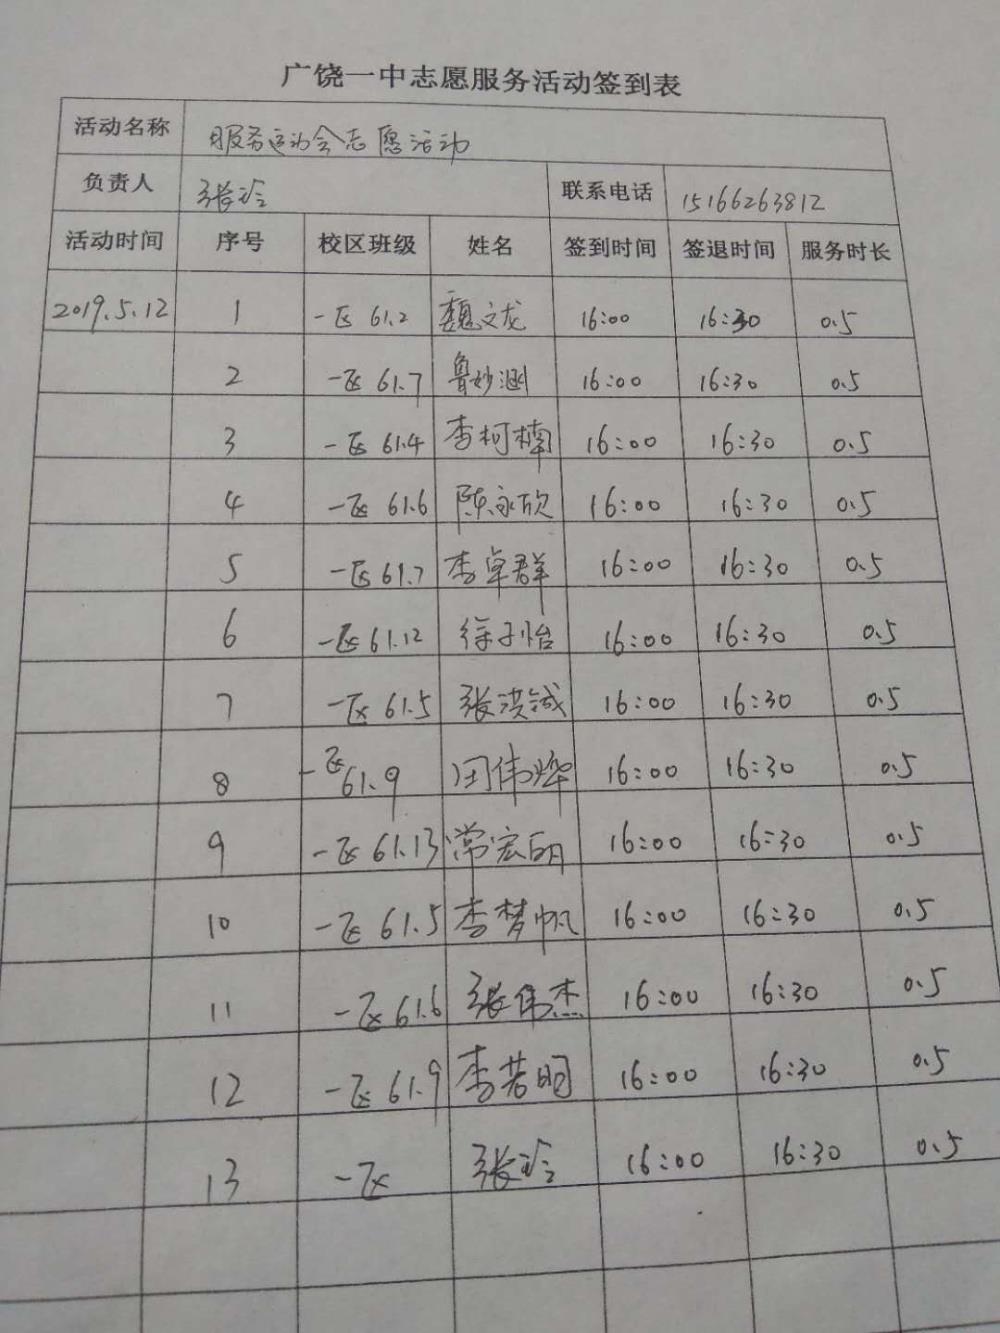 广饶一中志愿服务活动签到表
活动名称 服务运动会志愿活动
负责人 张玲 联系电话 15166263812
活动时间 序号 校区班级 姓名 签到时间 签退时间 服务时长
2019.5.12 1 一区 61.2 魏文龙 16:00 16:30 0.5
2 一区 61.7 鲁妙涵 16:00 16:30 0.5
3 一区 61.4 李柯楠 16:00 16:30 0.5
4 一区 61.6 陈永欣 16:00 16:30 0.5
5 一区 61.7 李卓群 16:00 16:30 0.5
6 一区 61.12 徐子怡 16:00 16:30 0.5
7 一区 61.5 张洪诚 16:00 16:30 0.5
8 一区 61.9 伟烨 16:00 16:30 0.5
9 一区 61.13 常宏 16:00 16:30 0.5
10 一区 61.5 李梦帆 16:00 16:30 0.5
11 一区 61.6 张伟杰 16:00 16:30 0.5
12 一区 61.9 李若明 16:00 16:30 0.5
13 一区 张玲 16:00 16:30 0.5